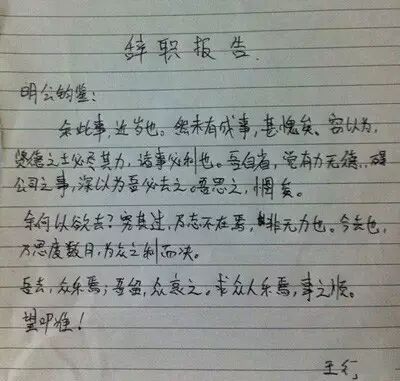 辞职报告
明公钧鉴:
余此事,近岁也。然未有成事,甚愧矣。窃以为,
德之士必尽其力,诸事必利也。吾自省,觉有力无德
公司之事,深以为吾必去之。吾思之,惘矣。
余何以欲去?究其过,乃志不在焉,非无力也。今去也,
乃思度数月,为众之利而决。
吾去,众乐焉;吾留,众哀之。求众人乐焉,事之顺。
望叩准!
王行